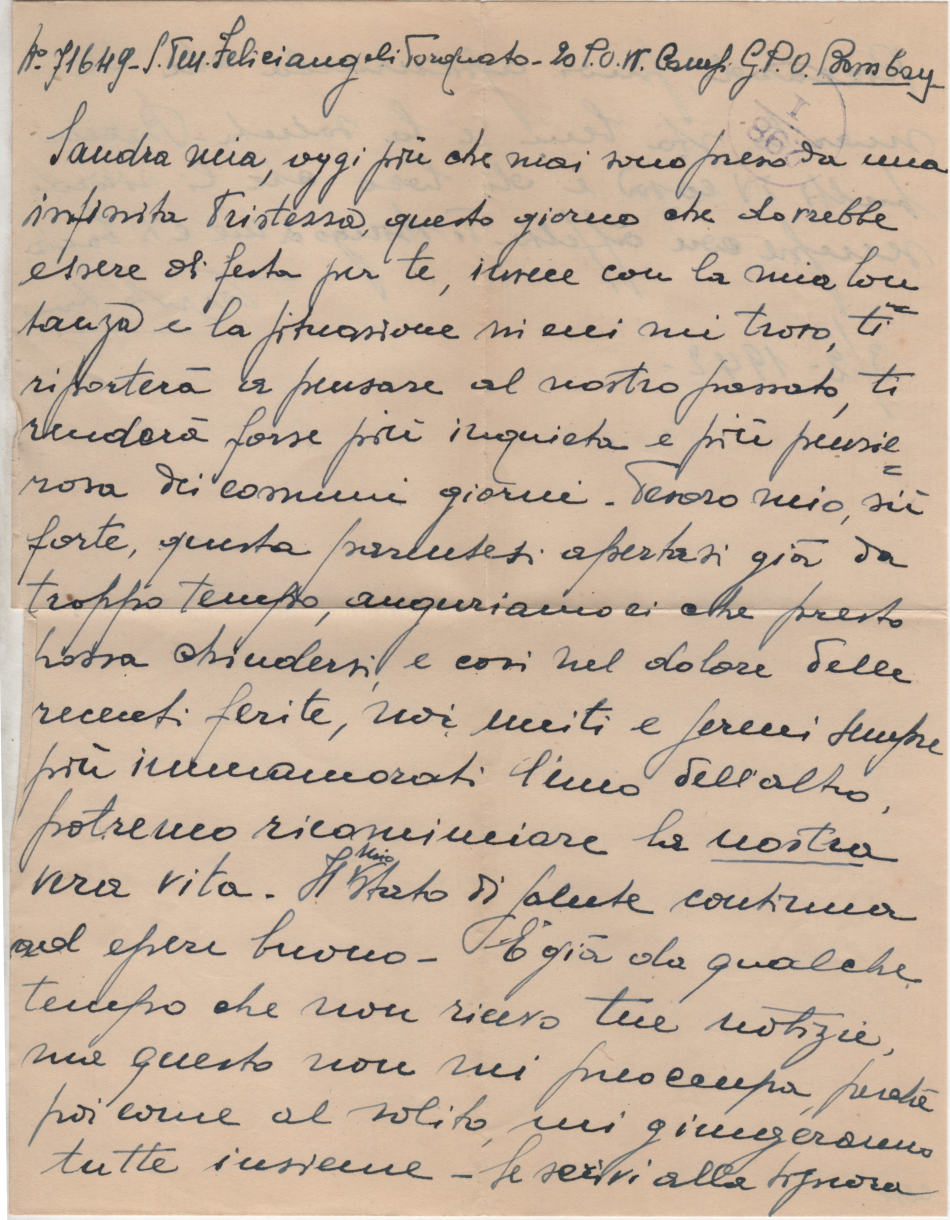 No 71649 - S. Ten. Feliciangeli Torquato - 20 P.O.W. Camp. G.P.O. Bombay -
Sandra mia, oggi più che mai sono preso da una
infinita tristezza, questo giorno che dovrebbe
essere di festa per te, invece con la mia lon=
tanza e la situazione in cui mi trovo, ti
riporterà a pensare al nostro passato, ti
renderà forse più inquieta e più pensie=
rosa dei comuni giorni - Tesoro mio, sii
forte, questa parentesi apertasi già da
troppo tempo, auguriamoci che presto
possa chiudersi, e così nel dolore delle
recenti ferite, noi uniti e sereni sempre
più innamorati l'uno dell'altro,
potremo ricominciare la nostra
vera vita - Il mio stato di salute continua
ad essere buono - È già da qualche
tempo che non ricevo tue notizie,
ma questo non mi preoccupa, perchè
poi come al solito, mi giungeranno
tutte insieme - Se scrivi alla signora